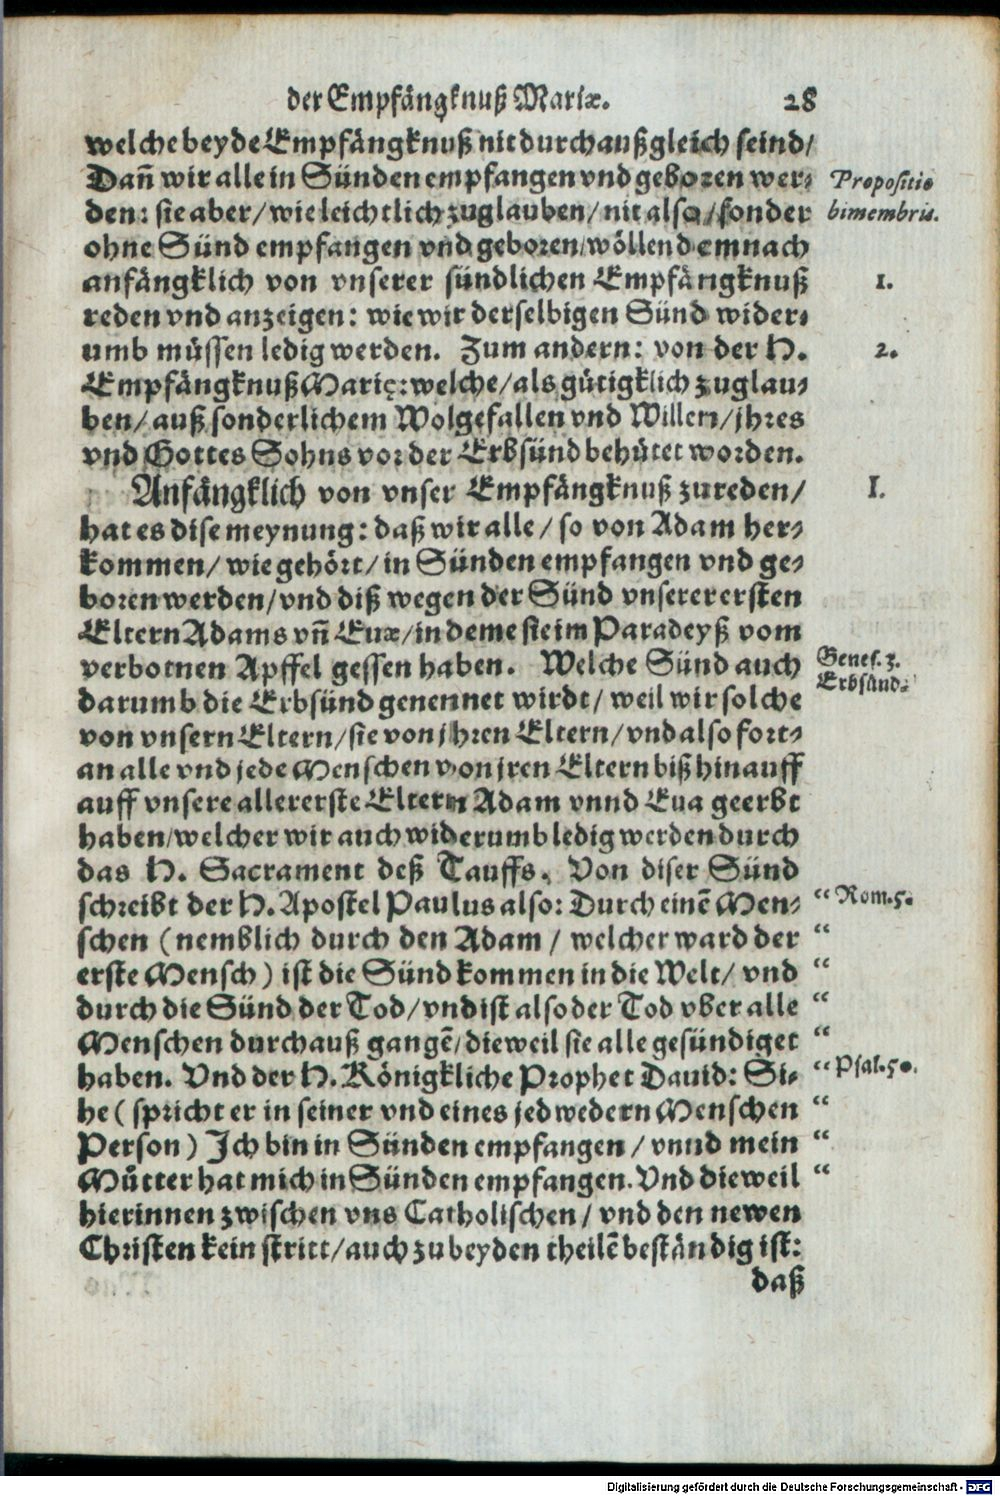 der Empfängknuß Mariæ. 28
welche beyde Empfängknuß nit durchauß gleich seind/
Dañ wir alle in Sünden empfangen vnd geboren wer-
Propositio
den: sie aber/ wie leichtlich zuglauben/ nit also/ sonder
bimembris.
ohne Sünd empfangen vnd geboren/ wöllen demnach
anfängklich von vnserer sündlichen Empfängknuß
1.
reden vnd anzeigen: wie wir derselbigen Sünd wider-
umb müssen ledig werden. Zum andern: von der H.
2.
Empfängknuß Marię: welche/ als gütigklich zuglau-
ben/ auß sonderlichem Wolgefallen vnd Willen/ jhres
vnd Gottes Sohns vor der Erbsünd behütet worden.
Anfängklich von vnser Empfängknuß zureden/
I.
hat es dise meynung: daß wir alle/ so von Adam her-
kommen/ wie gehört/ in Sünden empfangen vnd ge-
boren werden/ vnd diß wegen der Sünd vnserer ersten
Eltern Adams vñ Euæ/ in deme sie im Paradeyß vom
verbotnen Apffel gessen haben. Welche Sünd auch
Genes. 3.
Erbsünd.
darumb die Erbsünd genennet wirdt/ weil wir solche
von vnsern Eltern/ sie von jhren Eltern/ vnd also fort-
an alle vnd jede Menschen von jren Eltern biß hinauff
auff vnsere allererste Eltern Adam vnnd Eua geerbt
haben/ welcher wir auch widerumb ledig werden durch
das H. Sacrament deß Tauffs. Von diser Sünd
schreibt der H. Apostel Paulus also: Durch einē Men-
“ Rom. 5.
schen (nemblich durch den Adam/ welcher ward der “
erste Mensch) ist die Sünd kommen in die Welt/ vnd “
durch die Sünd der Tod/ vnd ist also der Tod vber alle “
Menschen durchauß gangē/ dieweil sie alle gesündiget “
haben. Vnd der H. Königkliche Prophet Dauid: Si-
“ Psal. 50.
he (spricht er in seiner vnd eines jedwedern Menschen “
Person) Ich bin in Sünden empfangen/ vnnd mein “
Můtter hat mich in Sünden empfangen. Vnd dieweil “
hierinnen zwischen vns Catholischen/ vnd den newen
Christen kein stritt/ auch zu beyden theilē beständig ist:
daß
Digitalisierung gefördert durch die Deutsche Forschungsgemeinschaft - DFG